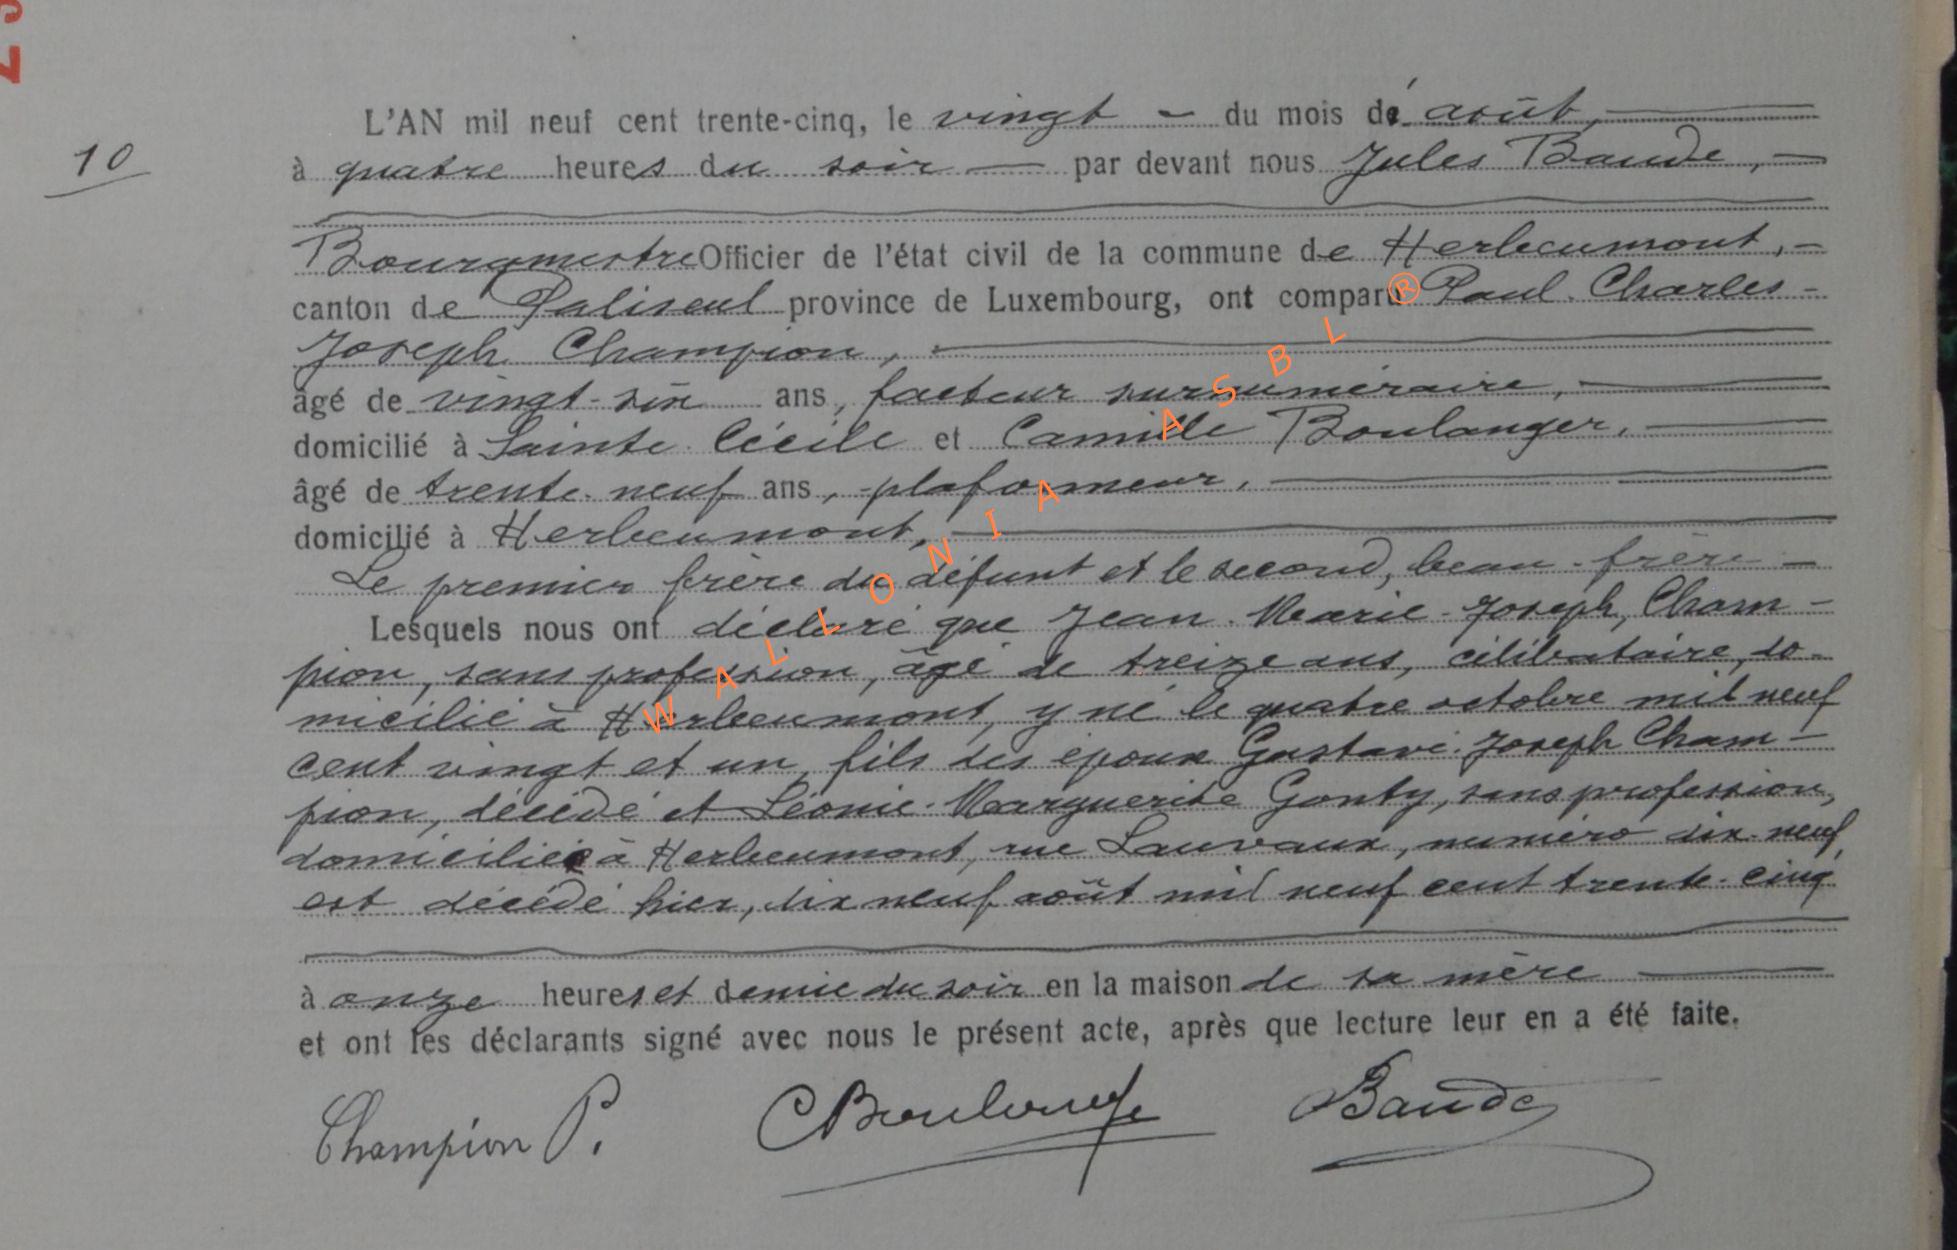 10
L'AN mil neuf cent trente-cinq, le vingt - du mois de août,
à quatre heures du soir — par devant nous Jules Baude, -
Bourgmestre Officier de l'état civil de la commune de Herbeumont, -
canton de Paliseul province de Luxembourg, ont comparu Paul-Charles-
Joseph Champion,
âgé de vingt-six ans, facteur surnuméraire,
domicilié à Sainte-Cécile et Camille Boulanger,
âgé de trente-neuf ans, plafonneur,
domicilié à Herbeumont,
Le premier frère du défunt et le second, beau-frère -
Lesquels nous ont déclaré que Jean-Marie-Joseph, Cham-
pion, sans profession, âgé de treize ans, célibataire, do-
micilié à Herbeumont, y né le quatre octobre mil neuf
cent vingt et un, fils des époux Gustave-Joseph Cham-
pion, décédé et Léonie-Marguerite Gonty, sans profession,
domiciliée à Herbeumont, rue Lauvaux, numéro dix-neuf,
est décédé hier, dix neuf août mil neuf cent trente-cinq
à onze heures et demie du soir en la maison de sa mère
et ont les déclarants signé avec nous le présent acte, après que lecture leur en a été faite.
Champion P. CBoulanger Baude
WALLONIA ASBL ®